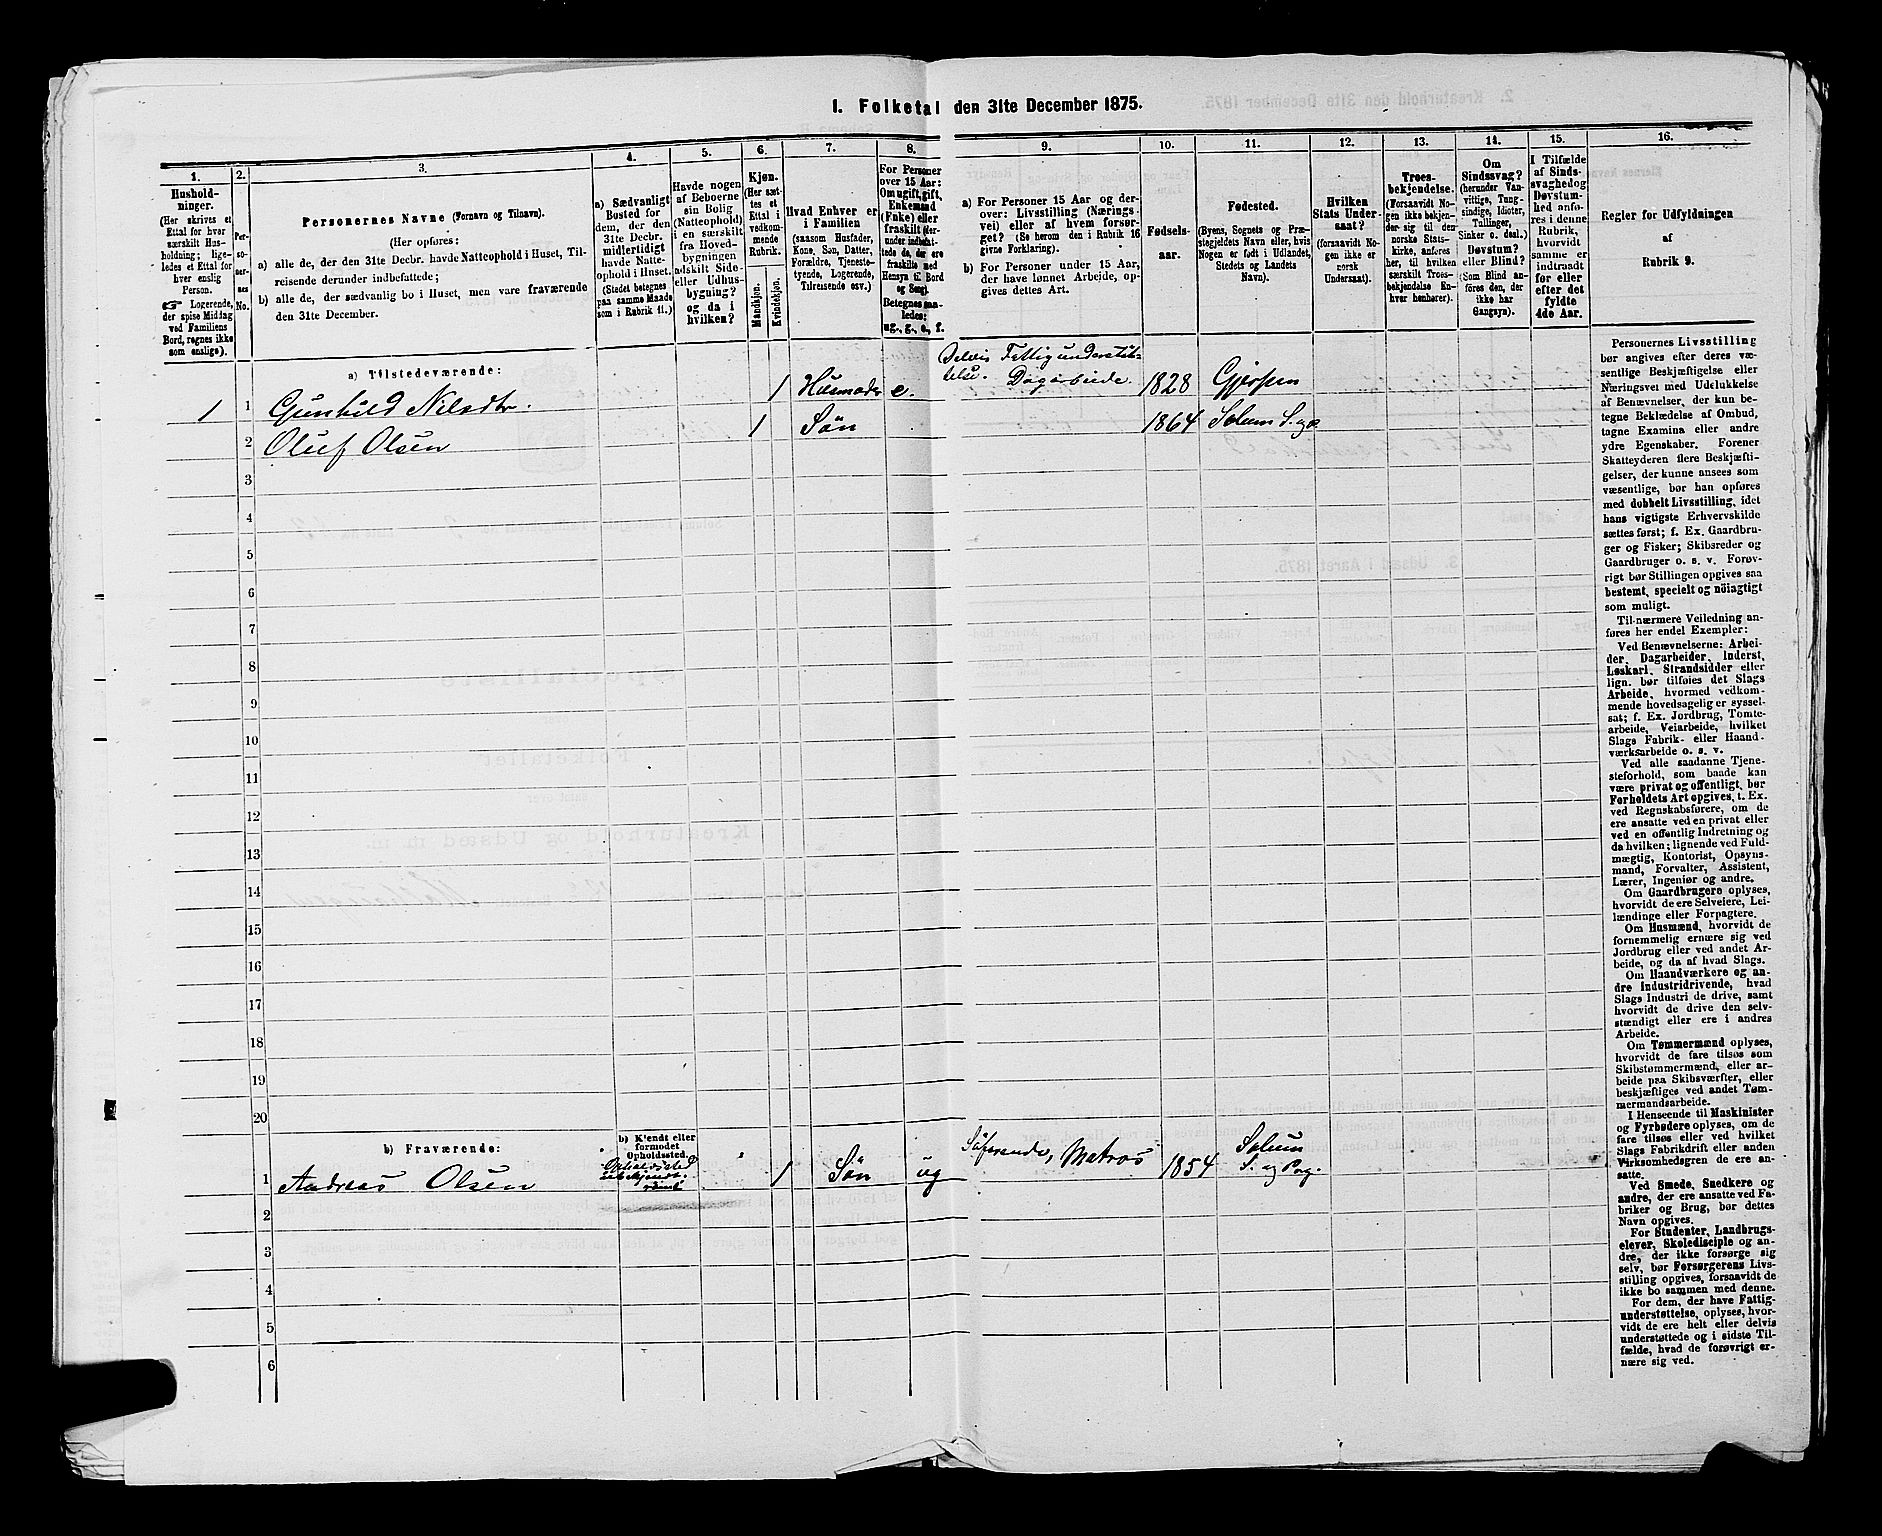 1. Folketal den 31te December 1875.
1.
Hushold-
ninger.
(Her skrives et
Ettal for hver
særskilt Hus-
holdning; lige-
ledes et Ettal for
hver enslig
Person.
☞ Logerende,
der spise Middag
ved Familiens
Bord, regnes ikke
som enslige).
2.
Per-
so-
ner-
nes
No.
3.
Personernes Navne (Fornavn og Tilnavn).
(Her opføres:
a) alle de, der den 31te Decbr. havde Natteophold i Huset, Til-
reisende derunder indbefattede;
b) alle de, der sædvanlig bo i Huset, men vare fraværende
den 31te December.
4.
a) Sædvanligt
Bosted for
dem, der den
31te Decbr.
midlertidigt
havde Natte-
ophold i Huset.
(Stedet betegnes
paa samme Maade
som i Rubrik 11.)
5.
Havde nogen
af Beboerne
sin Bolig
(Natteophold)
i en særskilt
fra Hoved-
bygningen
adskilt Side-
eller Udhus-
bygning?
og da i
hvilken?
6.
Kjøn.
(Her sæt-
tes et
Ettal i
vedkom-
mende
Rubrik.
Mandkjøn.
Kvindekjøn.
7.
Hvad Enhver er
i Familien
(saasom Husfader,
Kone, Søn, Datter,
Forældre, Tjeneste-
tyende, Logerende,
Tilreisende osv.)
8.
For Personer
over 15 Aar:
Om ugift, gift,
Enkemand
(Enke) eller
fraskilt (der-
under indbefat-
tede de, der ere
fraskilte med
Hensyn til Bord
og Seng).
Betegnes saa-
ledes:
ug., g., e., f.
9.
a) For Personer 15 Aar og der-
over: Livsstilling (Nærings-
vei) eller af hvem forsør-
get? (Se herom den i Rubrik 16
givne Forklaring).
b) For Personer under 15 Aar,
der have lønnet Arbeide, op-
gives dettes Art.
10.
Fødsels-
aar.
11.
Fødested.
(Byens, Sognets og Præ-
stegjeldets Navn eller, hvis
Nogen er født i Udlandet,
Stedets og Landets
Navn).
12.
Hvilken
Stats Under-
saat?
(forsaavidt No-
gen ikke er
norsk
Undersaat).
13.
Troes-
bekjendelse.
(Forsaavidt No-
gen ikke bekjen-
der sig til den
norske Stats-
kirke, anføres
her, til hvilken
særskilt Troes-
bekjendelse En-
hver henhører).
14.
Om
Sindssvag?
(herunder Van-
vittige, Tung-
sindige, Idioter,
Tullinger,
Sinker o. desl.)
Døvstum?
eller Blind?
(Som Blind an-
føres den, der
ikke har
Gangsyn).
15.
I Tilfælde
af Sinds-
svaghed og
Døvstum-
hed anfø-
res i denne
Rubrik,
hvorvidt
samme er
indtraadt
før eller
efter det
fyldte
4de Aar.
16.
Regler for Udfyldningen
af
Rubrik 9.
a) Tilstedeværende:
1 1 Gunhild Nilsdtr. 1 Husmoder e. Delvis Fattigunderstøt-
telse. Dagarbeide. 1828 Gjerpen
2 Oluf Olsen 1 Søn 1864 Solum S. og P
3
4
5
6
7
8
9
10
11
12
13
14
15
16
17
18
19
20
b) Fraværende:
b) Kjendt eller
formodet
Opholdssted.
1 Andreas Olsen Opholdssted 1 Søn ug Søfarende, Matros 1854 Solum
S. og Prg.
2
3
4
5
6
Personernes Livsstilling
bør angives efter deres væ-
sentlige Beskjæftigelse eller
Næringsvei med Udelukkelse
af Benævnelser, der kun be-
tegne Beklædelse af Ombud,
tagne Examina eller andre
ydre Egenskaber. Forener
Skatteyderen flere Beskjæfti-
gelser, der kunne ansees som
væsentlige, bør han opføres
med dobbelt Livsstilling, idet
hans vigtigste Erhvervskilde
sættes først; f. Ex. Gaardbru-
ger og Fisker; Skibsreder og
Gaardbruger o. s. v. Forøv-
rigt bør Stillingen opgives saa
bestemt, specielt og nöiagtigt
som muligt.
Til nærmere Veiledning an-
føres her endel Exempler:
Ved Benævnelserne: Arbei-
der, Dagarbeider, Inderst,
Løskarl, Strandsidder eller
lign. bør tilføies det Slags
Arbeide, hvormed vedkom-
mende hovedsagelig er syssel-
sat; f. Ex. Jordbrug, Tomte-
arbeide, Veiarbeide, hvilket
Slags Fabrik- eller Haand-
værksarbeide o. s. v.
Ved alle saadanne Tjene-
steforhold, som baade kan
være privat og offentligt, bør
Forholdets Art opgives, t. Ex.
ved Regnskabsførere, om de
ere ansatte ved en privat eller
ved en offentlig Indretning og
da hvilken; lignende ved Fuld-
mægtig, Kontorist, Opsyns-
mand, Forvalter, Assistent,
Lærer, Ingeniør og andre.
Om Gaardbrugere oplyses,
hvorvidt de ere Selveiere, Lei-
lændinge eller Forpagtere.
Om Husmænd, hvorvidt de
fornemmelig ernære sig ved
Jordbrug eller ved andet Ar-
beide, og da af hvad Slags.
Om Haandværkere og an-
dre Industridrivende, hvad
Slags Industri de drive, samt
hvorvidt de drive den selv-
stændigt eller ere i andres
Arbeide.
Om Tømmermænd oplyses,
hvorvidt de fare tilsøs som
Skibstømmermænd, eller ar-
beide paa Skibsværfter, eller
beskjæftiges ved andet Tøm-
mermandsarbeide.
I Henseende til Maskinister
og Fyrbødere oplyses, om de
fare tilsøs eller ved hvilket
Slags Fabrikdrift eller anden
Virksomhedsgren de ere an-
satte.
Ved Smede, Snedkere og
andre, der ere ansatte ved Fa-
briker og Brug, bør dettes
Navn opgives.
For Studenter, Landbrugs-
elever, Skoledisciple og an-
dre, der ikke forsørge sig
selv, bør Forsørgerens Livs-
stilling opgives, forsaavidt de
ikke bo sammen med denne.
For dem, der have Fattig-
understøttelse, oplyses, hvor-
vidt de ere helt eller delvis
understøttede og i sidste Til-
fælde, hvad de forøvrigt er-
nære sig ved.